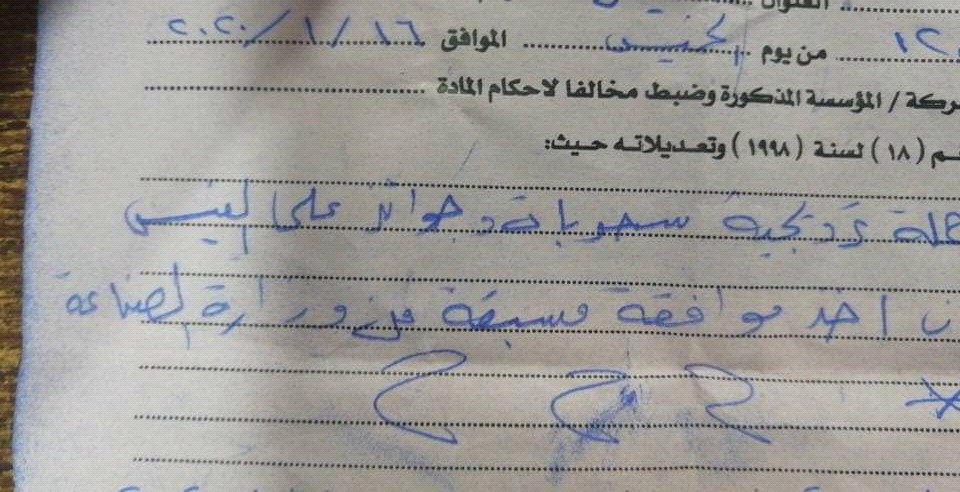 العنوان
١٢ من يوم الخميس الموافق ٢٠٢٠/١/١٦
ركة / المؤسسة المذكورة وضبط مخالفا لاحكام المادة
م (١٨) لسنة (١٩٩٨) وتعديلاته حيث:
حملة ترويجية سحوبات وجوائز على الفيس
ن اخذ موافقة مسبقة من وزارة الصناعة